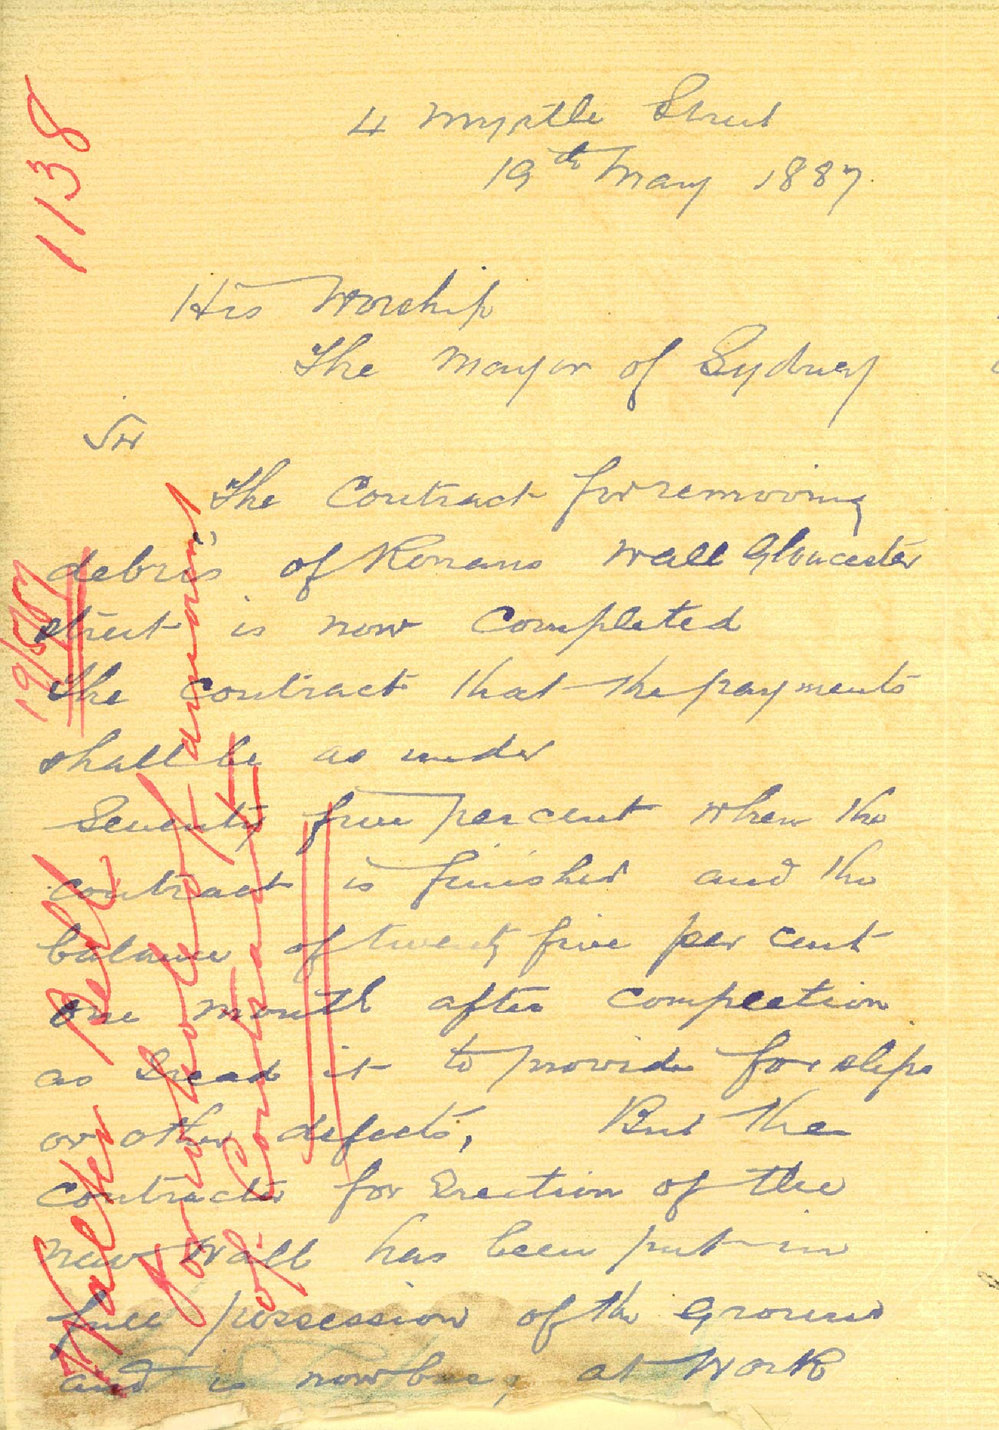 4 Myrtle Street
19th May 1887.
His Worship
The Mayor of Sydney
Sir
The Contract for removing
debris of Ronans Wall Gloucester
street is now Completed
The contract that the payments
shall be as under
Seventy five per cent when the
contract is finished and the
balance of twenty five per cent
one month after completion
as I read it to provide for slips
or other defects, But the
Contractor for Erection of the
new Wall has been put in
full possession of the Ground
and is now busy at Work
1138
19/5/87
Walter Bell
for whole of amount
of Contract